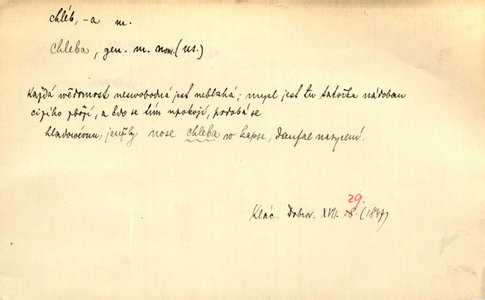 chléb, -a m.
chleba, gen. m. nom (us.)
Každá vědomost nesvobodná jest neblahá; mysl jest tu takořka nádobou
cizího zboží, a kdo se tím upokojí, podobá se
hladovému, jenžby nose chleba w kapse, daufal nasycení
29.
Klác. Dobrov. XVI. (1847)